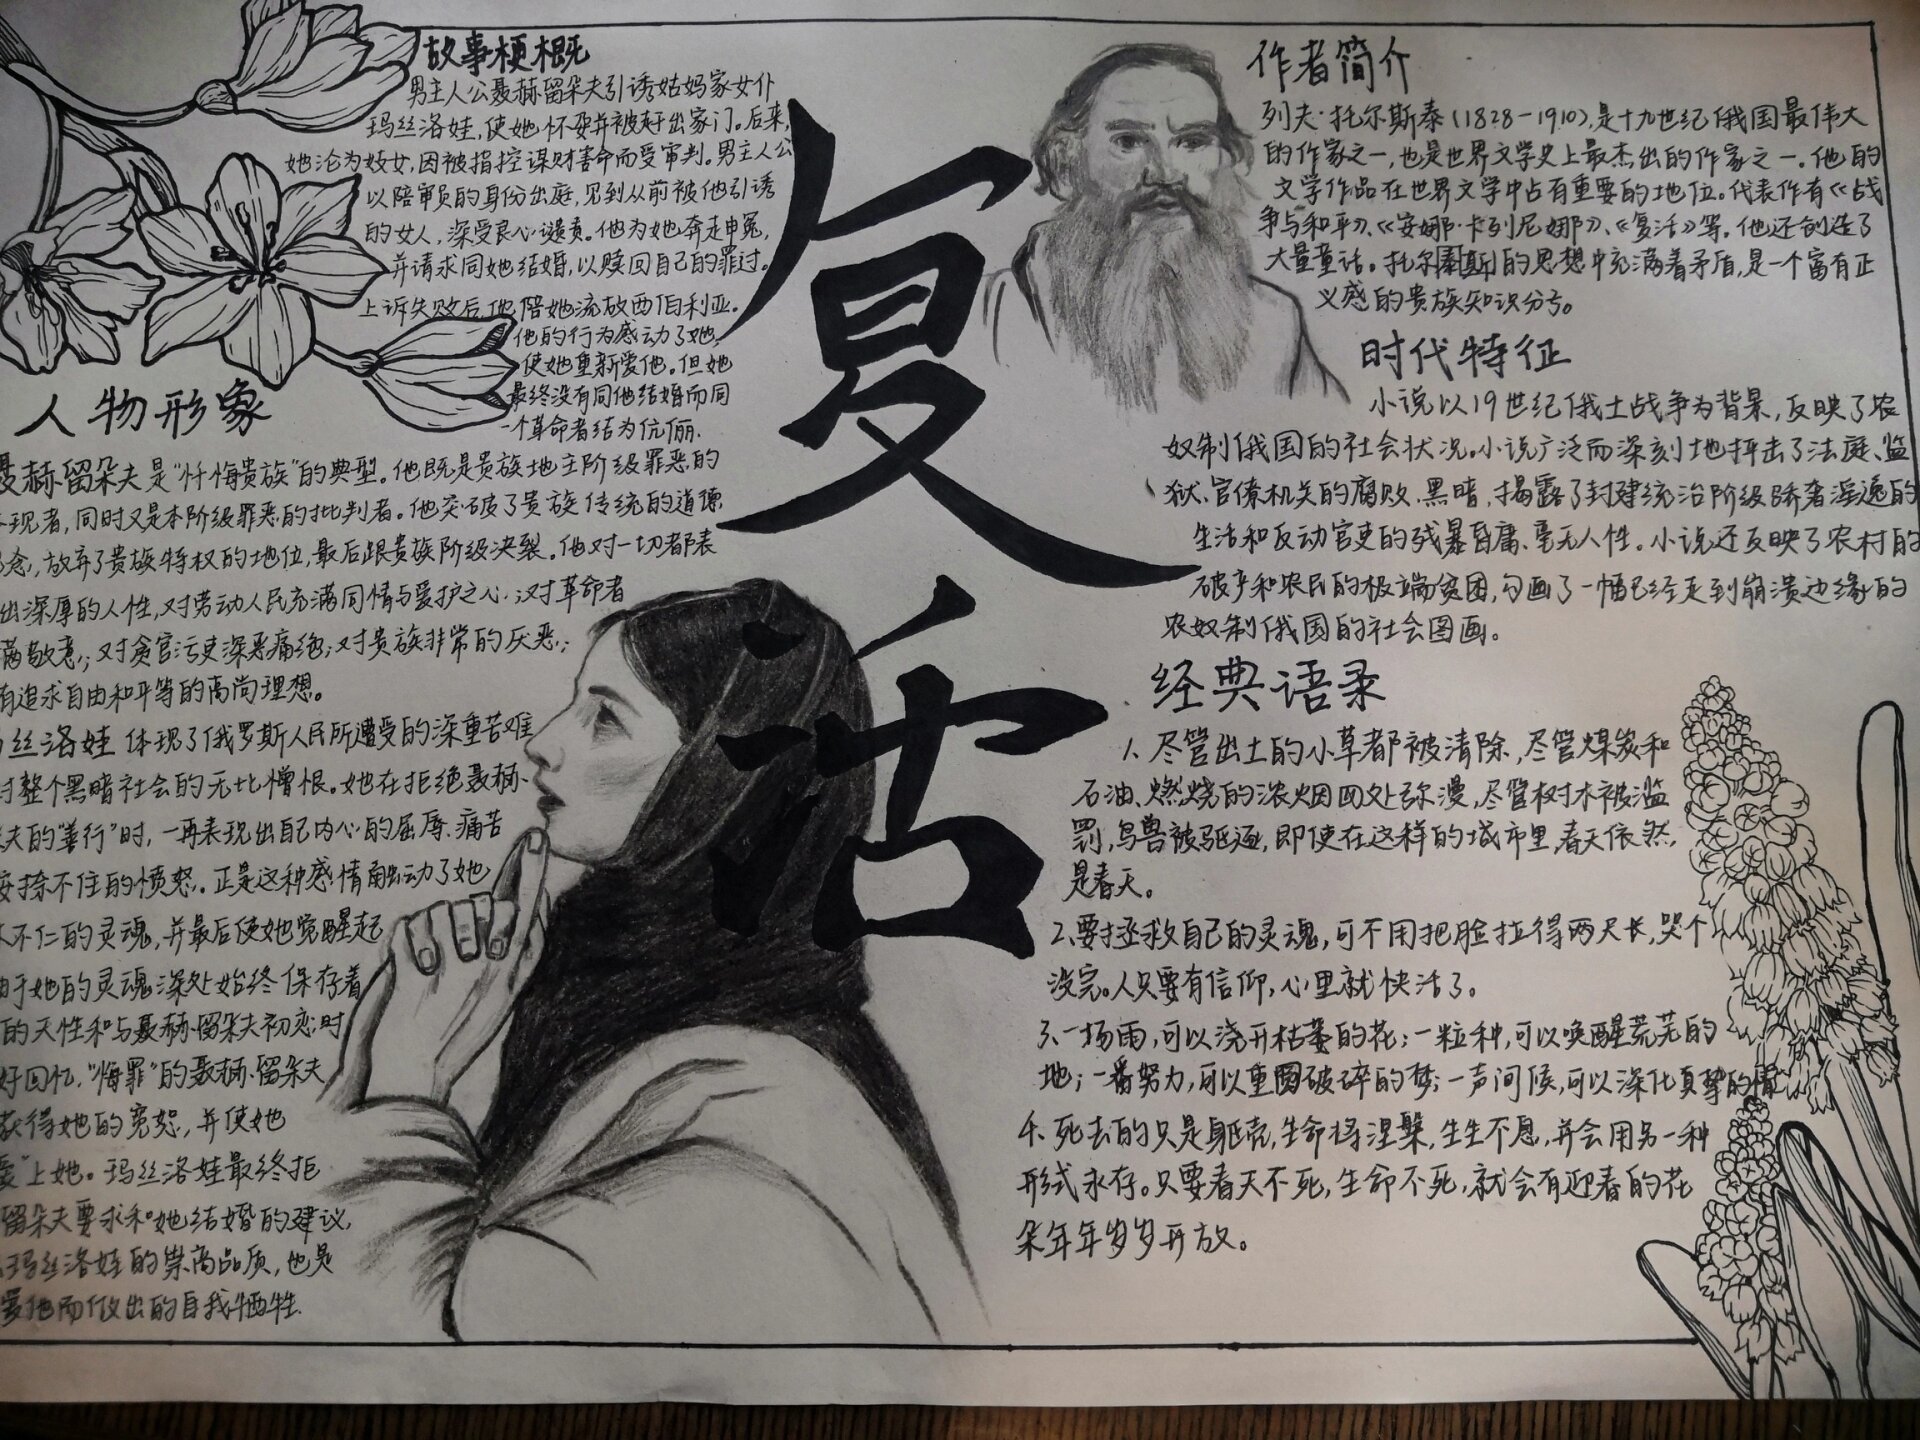 故事梗概
男主人公聂赫留朵夫引诱姑妈家女仆
玛丝洛娃，使她怀孕并被赶出家门。后来，
她沦为妓女，因被指控谋财害命而受审判。男主人公
以陪审员的身份出庭，见到从前被他引诱
的女人，深受良心谴责。他为她奔走申冤，
并请求同她结婚，以赎回自己的罪过。
上诉失败后，他陪她流放西伯利亚。
他的行为感动了她，
使她重新爱他。但她
最终没有同他结婚而同
一个革命者结为伉俪.
人物形象
聂赫留朵夫是“忏悔贵族”的典型。他既是贵族地主阶级罪恶的
现者，同时又是本阶级罪恶的批判者。他突破了贵族传统的道德
念，放弃了贵族特权的地位，最后跟贵族阶级决裂。他对一切都表
出深厚的人性，对劳动人民充满同情与爱护之心；对革命者
满敬意；对贪官污吏深恶痛绝；对贵族非常的厌恶；
有追求自由和平等的高尚理想。
丝洛娃体现了俄罗斯人民所遭受的深重苦难
对整个黑暗社会的无比憎恨。她在拒绝聂赫
夫的“善行”时，一再表现出自己内心的屈辱、痛苦
按捺不住的愤怒。正是这种感情触动了她
不仁的灵魂，并最后使她觉醒起
由于她的灵魂深处始终保存着
的天性和与聂赫留朵夫初恋时
好回忆，“悔罪”的聂赫留朵夫
获得她的宽恕，并使她
爱”上她。玛丝洛娃最终拒
留朵夫要求和她结婚的建议，
玛丝洛娃的崇高品质，也是
爱他而做出的自我牺牲.
复活
作者简介
列夫·托尔斯泰(1828-1910)，是十九世纪俄国最伟大
的作家之一，也是世界文学史上最杰出的作家之一。他的
文学作品在世界文学中占有重要的地位。代表作有《战
争与和平》、《安娜·卡列尼娜》、《复活》等。他还创造了
大量童话。托尔斯的思想中充满着矛盾，是一个富有正
义感的贵族知识分子。
时代特征
小说以19世纪俄土战争为背景，反映了农
奴制俄国的社会状况。小说广泛而深刻地抨击了法庭、监
狱、官僚机关的腐败、黑暗，揭露了封建统治阶级骄奢淫逸的
生活和反动官吏的残暴昏庸、毫无人性。小说还反映了农村的
破产和农民的极端贫困，勾画了一幅已经走到崩溃边缘的
农奴制俄国的社会图画。
经典语录
1、尽管出土的小草都被清除，尽管煤炭和
石油、燃烧的浓烟四处弥漫，尽管树木被滥
罚，鸟兽被驱逐，即使在这样的城市里，春天依然
是春天。
2、要拯救自己的灵魂，可不用把脸拉得两尺长，哭个
没完。人只要有信仰，心里就快活了。
3、一场雨，可以浇开枯萎的花；一粒种，可以唤醒荒芜的
地；一番努力，可以重圆破碎的梦；一声问候，可以深化真挚的情
4、死去的只是躯壳，生命将涅槃，生生不息，并会用另一种
形式永存。只要春天不死，生命不死，就会有迎春的花
朵年年岁岁开放。